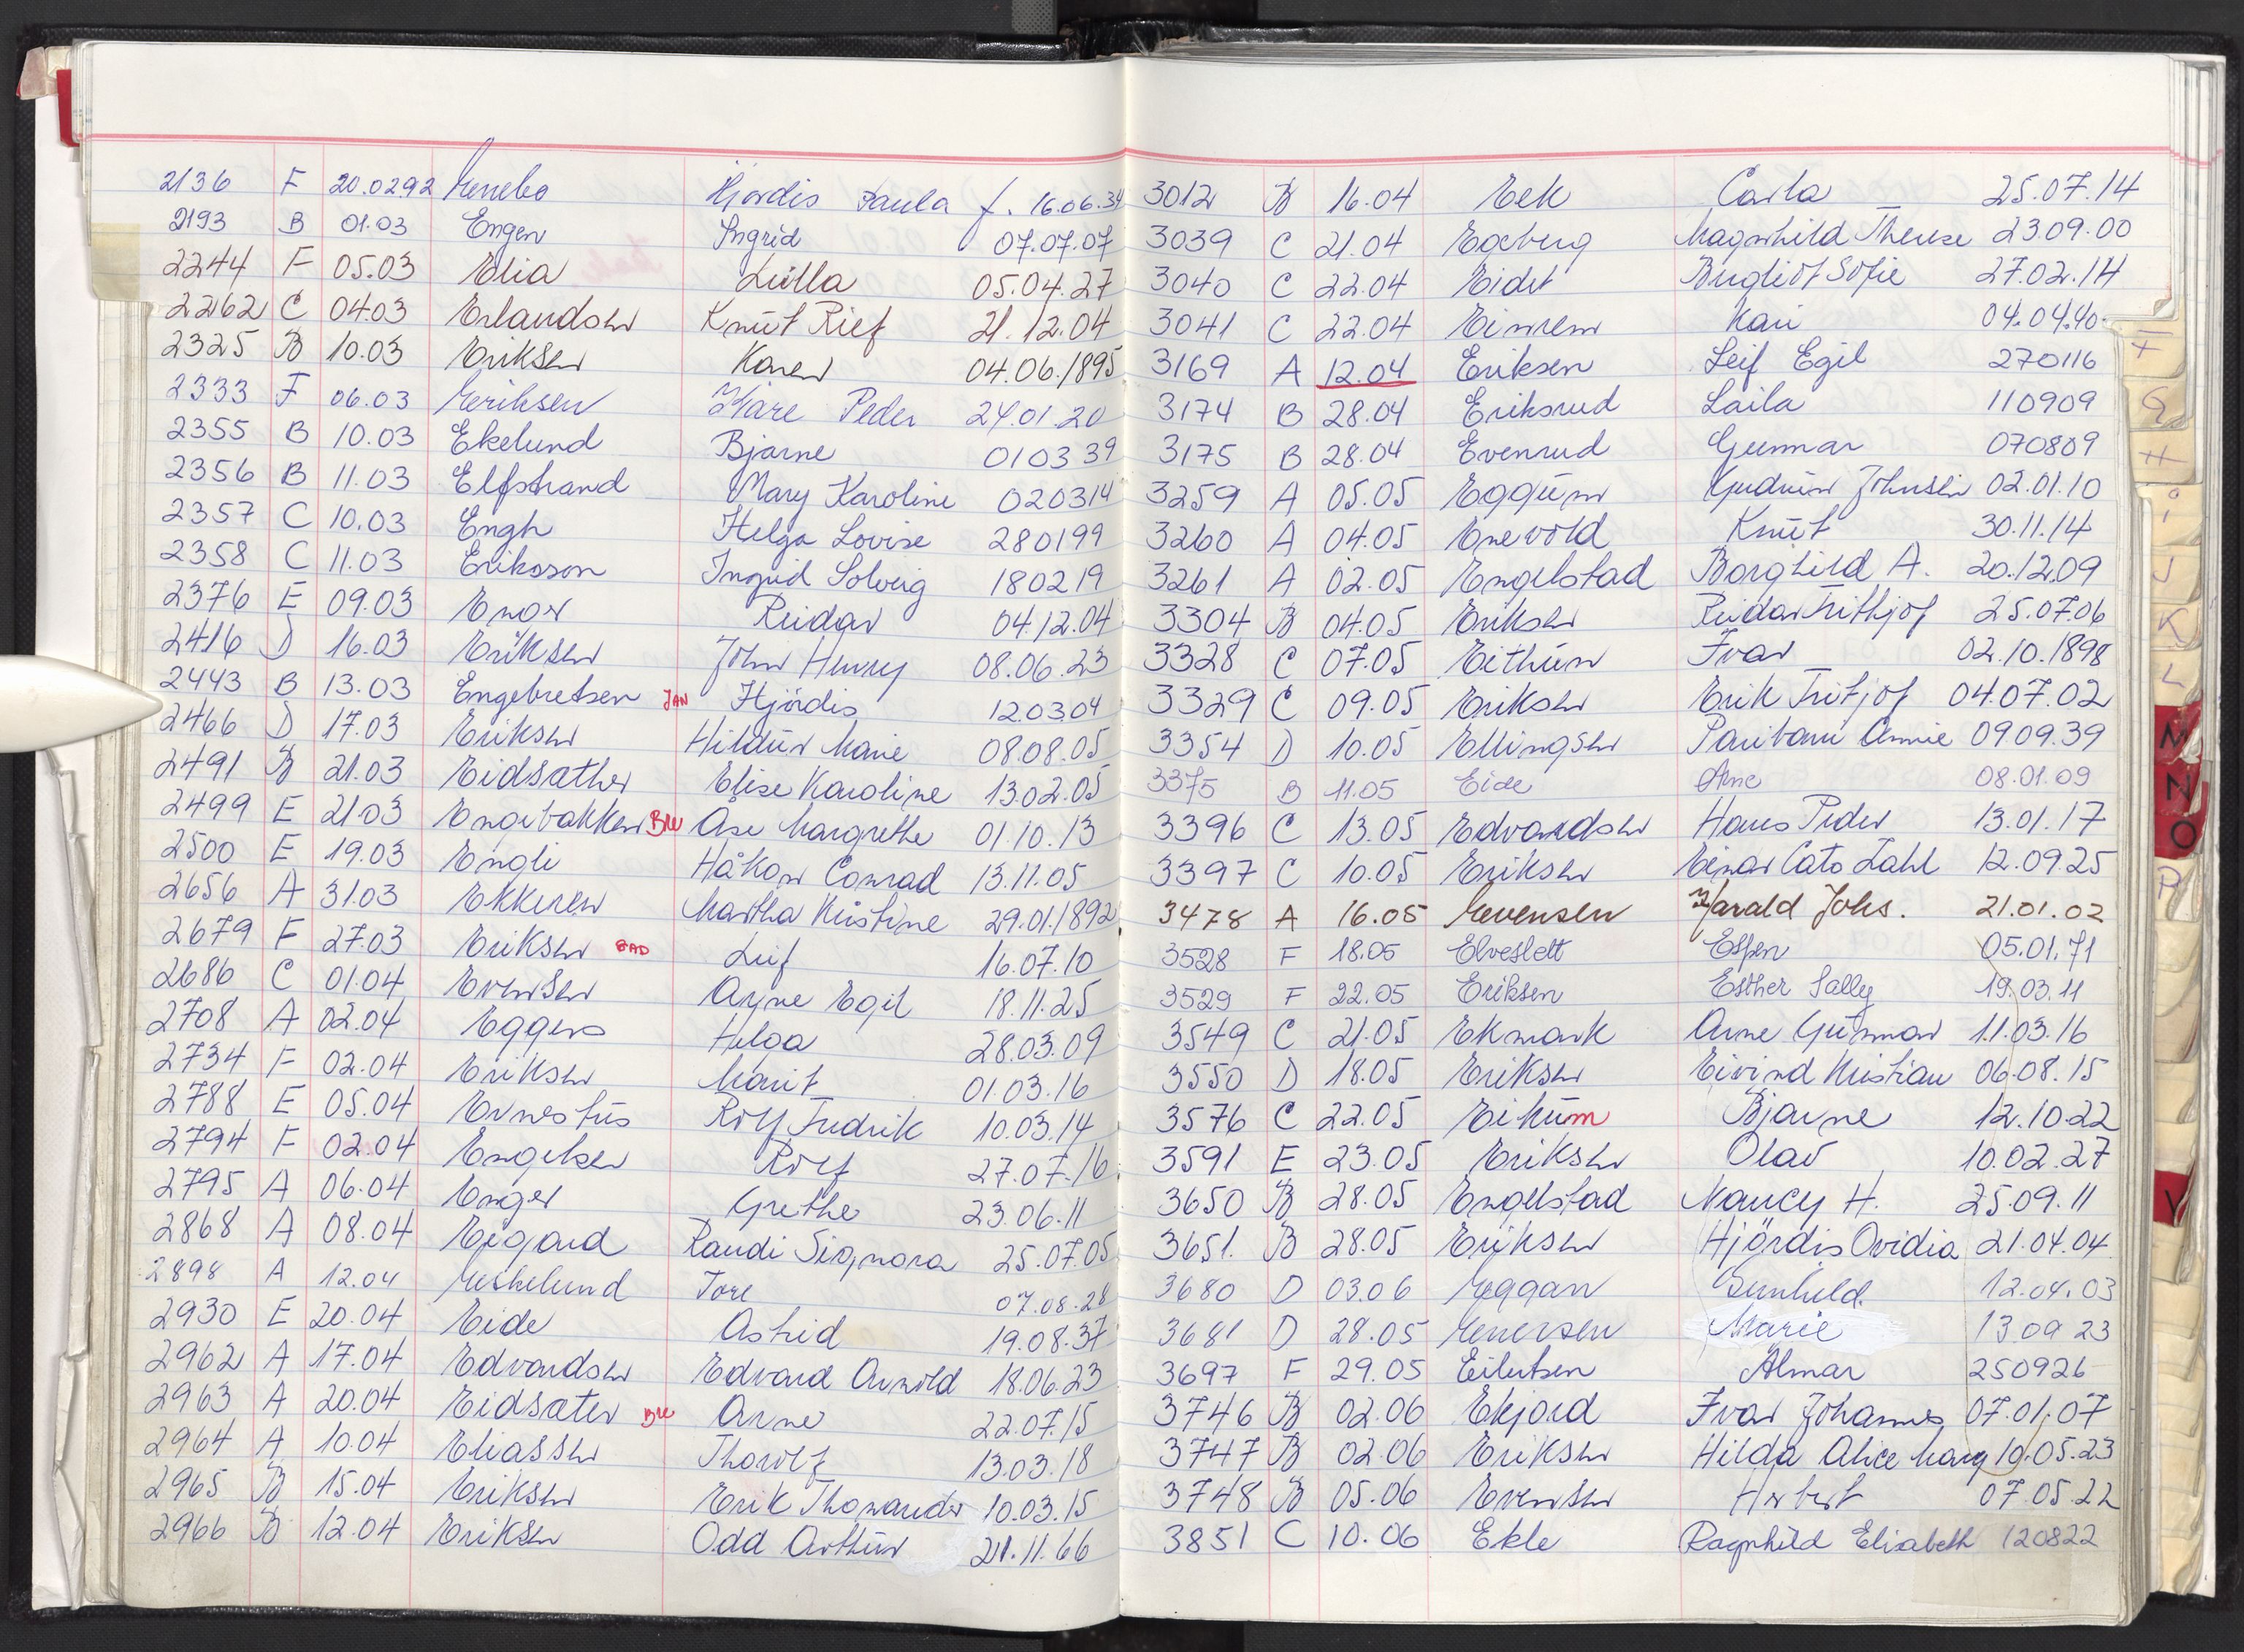 2136 F 20.02.92 Enebo Hjørdis Paula f. 16.06.34
2193 B 01.03 Engen Ingrid 07.07.07
2244 F 05.03 Elia Lulla 05.04.27
2262 C 04.03 Erlandsen Knut Rief 21.12.04
2325 B 10.03 Eriksen Karen 04.06.1895
2333 F 06.03 Eriksen Kåre Peder 24.01.20
2355 B 10.03 Ekelund Bjarne 010339
2356 B 11.03 Elfstrand Mary Karoline 020314
2357 C 10.03 Engh Helga Lovise 280199
2358 C 11.03 Eriksson Ingrid Solveig 180219
2376 E 09.03 Enger Reidar 04.12.04
2416 D 16.03 Eriksen John Henry 08.06.23
2443 B 13.03 Engebretsen JAN Hjördis 12.03.04
2466 D 17.03 Eriksen Hildur Marie 08.08.05
2491 B 21.03 Eidsæther Elise Karoline 13.02.05
2499 E 21.03 Engebakken Åse Margrethe 01.10.13
2500 E 19.03 Engli Håkon Conrad 13.11.05
2656 A 31.03 Ekkeren Martha Kristine 29.01.1892
2679 F 27.03 Eriksen Leif 16.07.10
2686 C 01.04 Evensen Arne Egil 18.11.25
2708 A 02.04 Eggers Helga 28.03.09
2734 F 02.04 Eriksen Marit 01.03.16
2788 E 05.04 Ernestus Rolf Fredrik 10.03.14
2794 F 02.04 Engelsen Rolf 27.07.16
2795 A 06.04 Enger Grethe 23.06.11
2868 A 08.04 Eigard Randi Signora 25.07.05
2898 A 12.04 Eskelund Tore 07.08.28
2930 E 20.04 Eide Astrid 19.08.37
2962 A 17.04 Edvardsen Edvard Arnold 18.06.23
2963 A 20.04 Eidsæter Arne 22.07.15
2964 A 10.04 Eliassen Thorolf 13.03.18
2965 B 15.04 Eriksen Erik Thorvander 10.03.15
2966 B 12.04 Eriksen Odd Arthur 21.11.66
3012 B 16.04 Eek Carla 25.07.14
3039 C 21.04 Egeberg Magnhild Therese 23.09.00
3040 C 22.04 Eidet Bergliot Sofie 27.02.14
3041 C 22.04 Einrem Kari 04.04.40
3169 A 12.04 Eriksen Leif Egil 270116
3174 B 28.04 Eriksrud Laila 110909
3175 B 28.04 Evenrud Gunnar 070809
3259 A 05.05 Eggum Gudrun Johnsen 02.01.10
3260 A 04.05 Enevold Knut 30.11.14
3261 A 02.05 Engelstad Borghild A. 20.12.09
3304 B 04.05 Eriksen Reidar Frithjof 25.07.06
3328 C 07.05 Eithun Ivar 02.10.1898
3329 C 09.05 Eriksen Erik Fritjof 04.07.02
3354 D 10.05 Ellingsen Annie 09.09.39
3375 B 11.05 Eide Arne 08.01.09
3396 C 13.05 Edvardsen Hans Peder 13.01.17
3397 C 10.05 Eriksen Einar Cato Zahl 12.09.25
3478 A 16.05 Evensen Harald Johs. 21.01.02
3528 F 18.05 Elveslett Espen 05.01.71
3529 F 22.05 Eriksen Esther Sally 19.03.11
3549 C 21.05 Ekmark Arne Gunnar 11.03.16
3550 D 18.05 Eriksen Eivind Kristian 06.08.15
3576 C 22.05 Eikum Bjarne 12.10.22
3591 E 23.05 Eriksen Olav 10.02.27
3650 B 28.05 Engelstad Nancy H. 25.09.11
3651. B 28.05 Eriksen Hjördis Ovidia 21.04.04
3680 D 03.06 Eggan Gunhild. 12.04.03
3681 D 28.05 Enersen Marie 13.09 23
3697 F 29.05 Eilertsen Almar 250926
3746 B 02.06 Ekjord Ivar Johannes 07.01.07
3747 B 02.06 Eriksen Hilda Alice Marg 10.05.23
3748 B 05.06 Evensen Herbert 07.05.22
3851 C 10.06 Ekle Ragnhild Elisabeth 120822
F
G
H
I
J
K
L
M
N
O
P
V